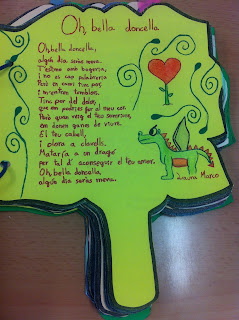 Oh, bella doncella
Oh, bella doncella,
algún dia seràs meva.
T'estimo amb bogeria,
i no és cap palabraria
Però en canvi tinc por
i m'entren tremblors.
Tinc por del dolor,
que em podries fer al meu cor.
Però quan veig el teu somriure,
em donen ganes de viure.
El teu cabell,
i olora a clavells.
Mataria a un dragó
per tal d' aconseguir el teu amor.
Oh, bella doncella,
algún dia seràs meva.
Laura Marco